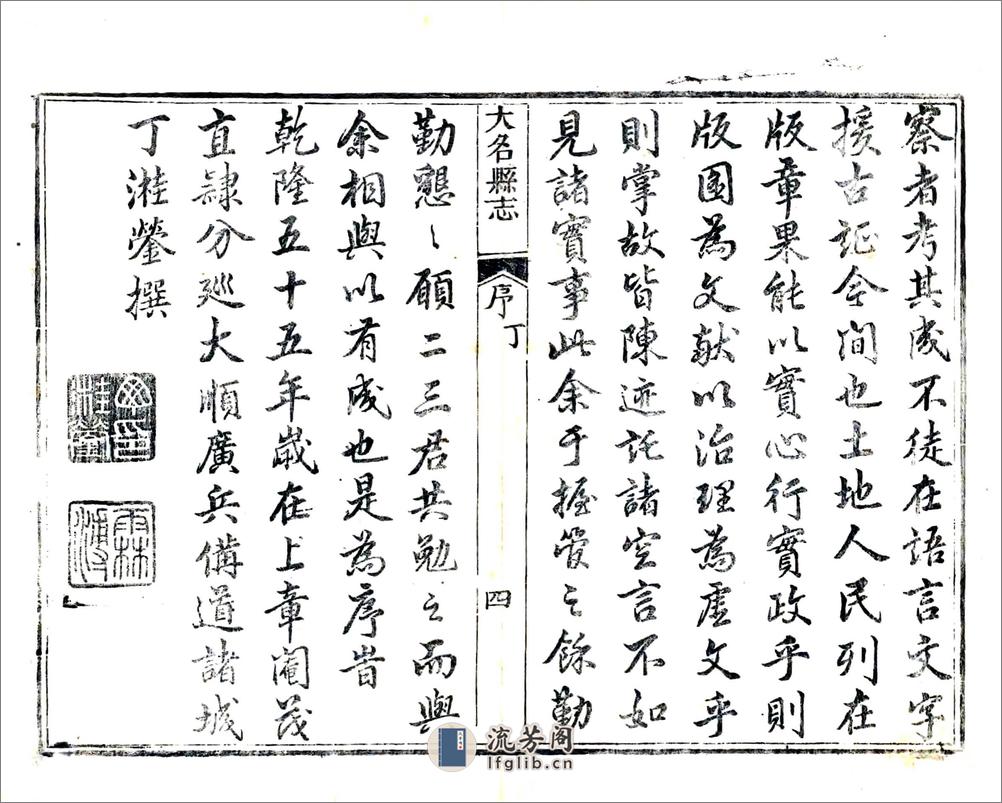 察者考其成不徒在語言文字
援古証今間也土地人民列在
版章果能以實心行實政乎則
版圖為文献以治理為虛文乎
則掌故皆陳迹託諸空言不如
見諸實事此余于握管之餘勤
大名縣志
序丁
四
勤懇〻願二三君共勉之而與
余相與以有成也是為序旹
乾隆五十五年歲在上章閹茂
直隷分廵大順廣兵備道諸城
丁溎鎣撰
雨林
流芳阁
lfglib.cn